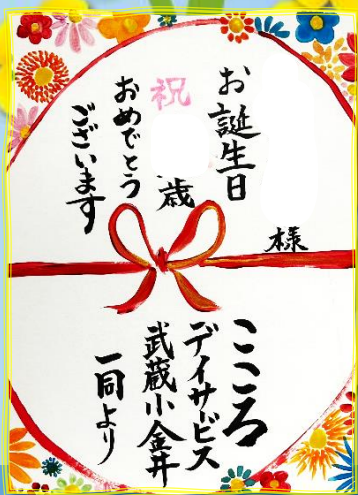 様
お誕生日
祝
歳
おめでとう
ございます
こころ
デイサービス
武蔵小金井
一同より